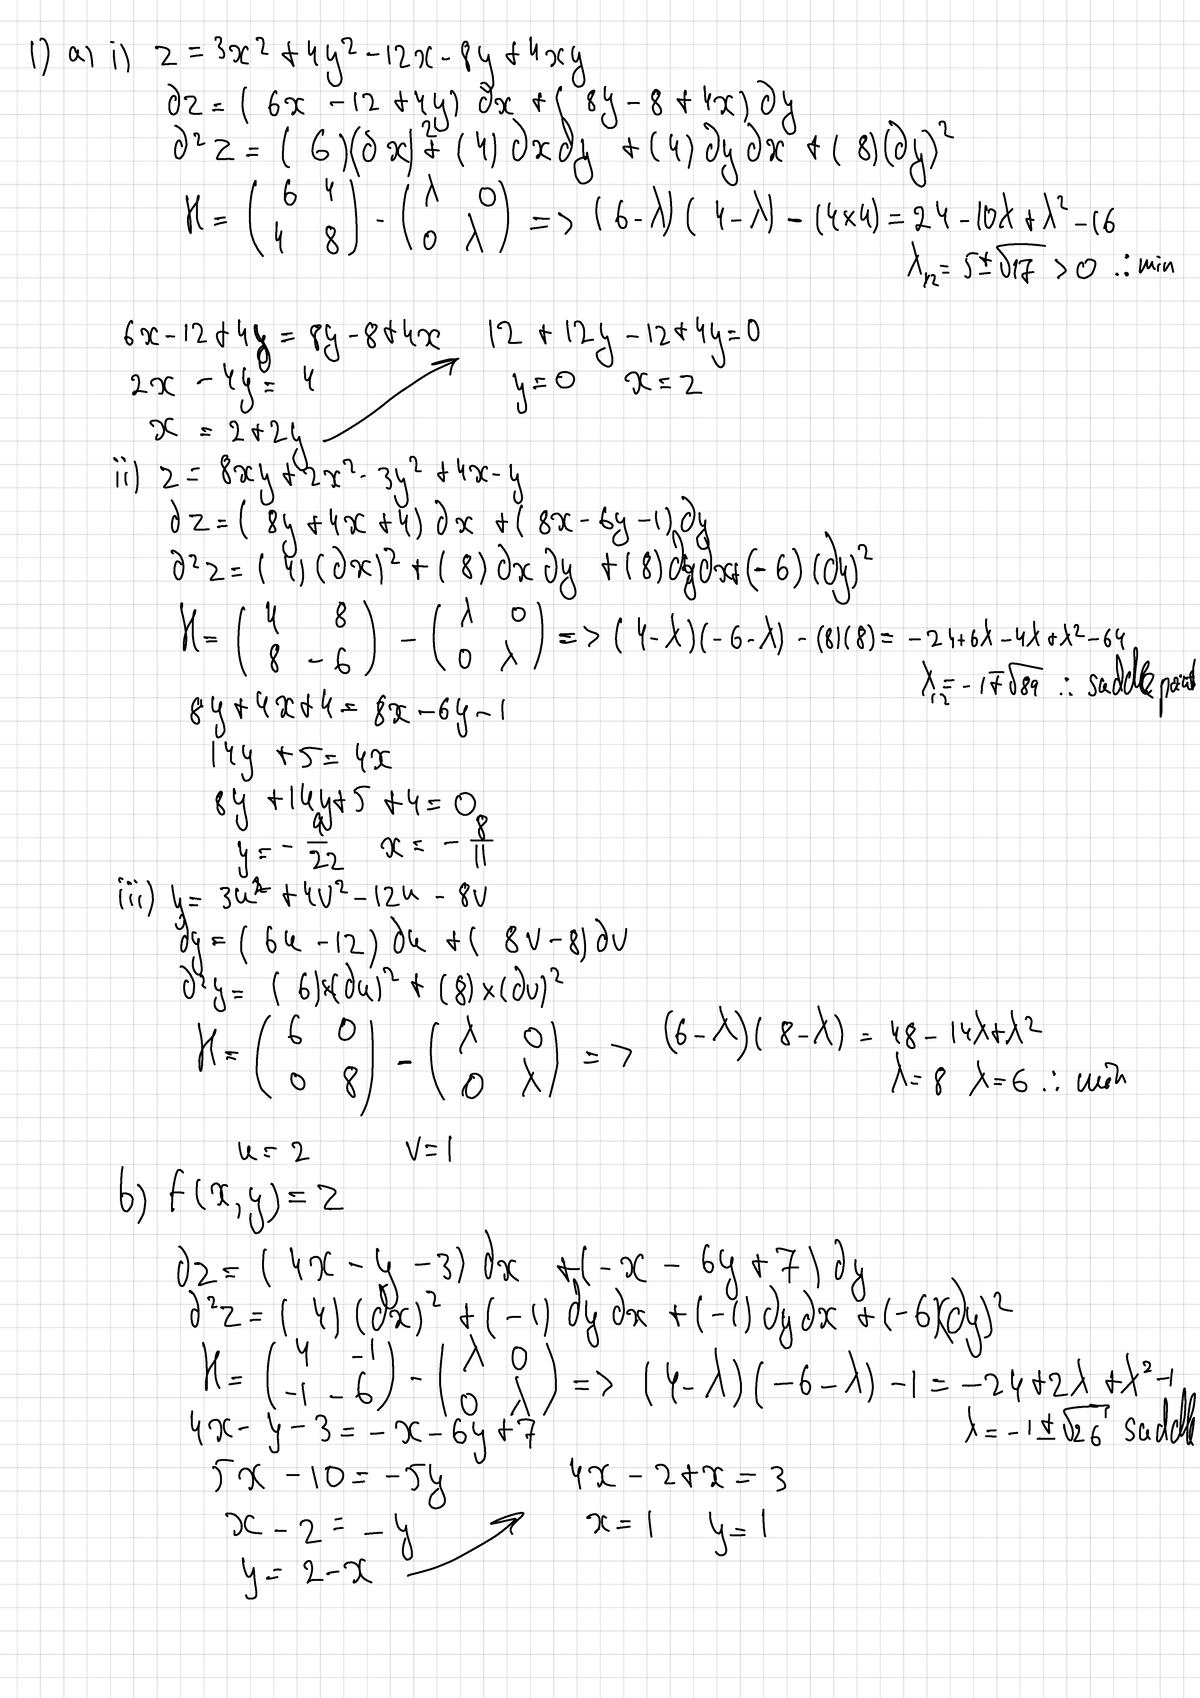 1) a) i) z = 3x² + 4y² - 12x - 8y + 4xy
∂z = ( 6x - 12 + 4y) ∂x + ( 8y - 8 + 4x) ∂y
∂²z = ( 6)(∂x)² + (4) ∂x∂y + (4) ∂y∂x + (8)(∂y)²
H = (6 4; 4 8) - (λ 0; 0 λ) => (6-λ)( 4-λ) - (4×4) = 24 - 10λ + λ² - 16
λ₁,₂ = 5±√17 > 0 ∴ min
6x - 12 + 4y = 8y - 8 + 4x 12 + 12y - 12 + 4y = 0
2x - 4y = 4 y = 0 x = 2
x = 2 + 2y
ii) z = 8xy + 2x² - 3y² + 4x - y
∂z = ( 8y + 4x + 4) ∂x + ( 8x - 6y - 1) ∂y
∂²z = ( 4) (∂x)² + ( 8) ∂x ∂y + (8) ∂y∂x + (-6) (∂y)²
H = (4 8; 8 -6) - (λ 0; 0 λ) => ( 4-λ)(-6-λ) - (8)(8) = -24 + 6λ - 4λ + λ² - 64
λ₁,₂ = -1∓√89 ∴ saddle point
8y + 4x + 4 = 8x - 6y - 1
14y + 5 = 4x
8y + 14y + 5 + 4 = 0
y = - 9/22 x = - 8/11
iii) y = 3u² + 4v² - 12u - 8v
∂y = ( 6u - 12) ∂u + ( 8v - 8) ∂v
∂²y = ( 6)×(∂u)² + (8)×(∂v)²
H = (6 0; 0 8) - (λ 0; 0 λ) => (6-λ)( 8-λ) = 48 - 14λ + λ²
λ = 8 λ = 6 ∴ min
u = 2 v = 1
b) f(x,y) = z
∂z = ( 4x - y - 3) ∂x + (-x - 6y + 7) ∂y
∂²z = ( 4) (∂x)² + (-1) ∂y ∂x + (-1) ∂y ∂x + (-6)(∂y)²
H = (4 -1; -1 -6) - (λ 0; 0 λ) => (4-λ)(-6-λ) - 1 = -24 + 2λ + λ² - 1
λ = -1 ± √26 saddle
4x - y - 3 = -x - 6y + 7
5x - 10 = -5y 4x - 2 + x = 3
x - 2 = - y x = 1 y = 1
y = 2 - x